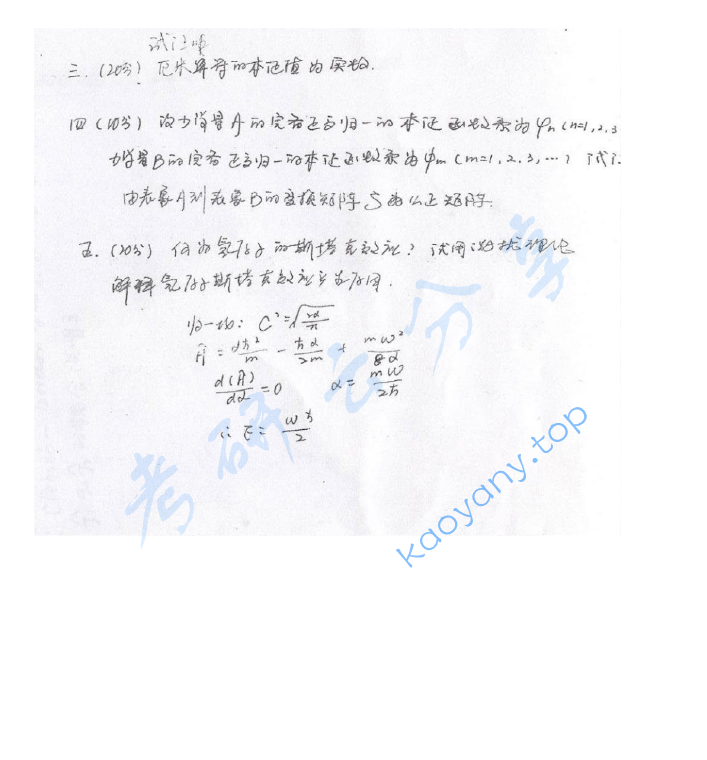 试证明
三.(20分) 厄米算符的本征值为实数.
四(10分) 设力学量A的完备正交归一的本征函数系为φn(n=1,2,3
力学量B的完备正交归一的本征函数系为ψm(m=1,2,3,…) 试证
由表象A到表象B的变换矩阵S为幺正矩阵.
五.(20分) 何为氢原子的斯塔克效应? 试用微扰理论
解释氢原子斯塔克效应产生原因.
归一化: C²=√(2α/π)
H̄ = αħ²/m - ħα/2m + mω²/8α
d(H̄)/dα =0 α= mω/2ħ
∴ E= ωħ/2
考研云分享
kaoyany.top